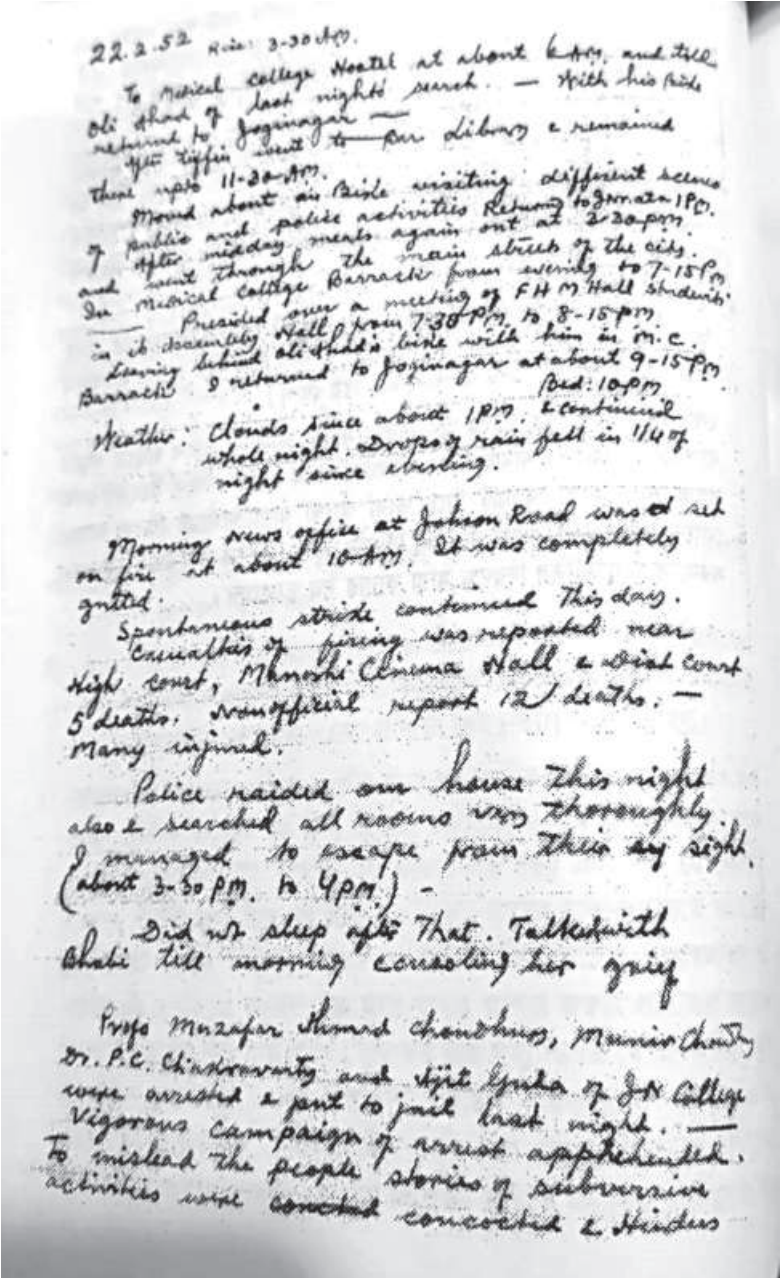 22.2.52 Rise: 3-30 AM.
To Medical College Hostel at about 6 AM, and till
Oli Ahad of last night's search. — With his Bike
returned to Joginagar —
After tiffin went to Bar Library & remained
there upto 11-30-AM.
Moved about in Bike visiting different scenes
of public and police activities Returned to at 1 PM.
After midday meals again out at 2-30 pm.
and went through the main streets of the city.
In Medical College Barrack from evening to 7-15 PM
Presided over a meeting of F H M Hall students
in its Assembly Hall from 7-30 PM to 8-15 pm
Leaving behind Oli Ahad's bike with him in M.C.
Barrack I returned to Joginagar at about 9-15 PM
Bed: 10 PM
Weather: Clouds since about 1 PM, & continued
whole night. Drops of rain fell in 1/4 of
night since evening.
Morning News office at Johson Road was set
on fire at about 10-AM. It was completely
gutted.
Spontaneous strike continued this day.
Casualties of firing was reported near
High court, Manoshi Cinema Hall & Dist court
5 deaths. Nonofficial report 12 deaths. —
Many injured.
Police raided our house this night
also & searched all rooms very thoroughly.
I managed to escape from their sight.
(about 3-30 pm. to 4 pm) -
Did not sleep after that. Talked with
Bhabi till morning consoling her grief
Profs Muzafar Ahmad Choudhury, Munir Chowdhy
Dr. P.C. Chakravarty and Ajit Guha of JN College
were arrested & put to jail last night. —
Vigorous campaign of arrest apprehended.
To mislead the people stories of subversive
activities were concocted & Hindus